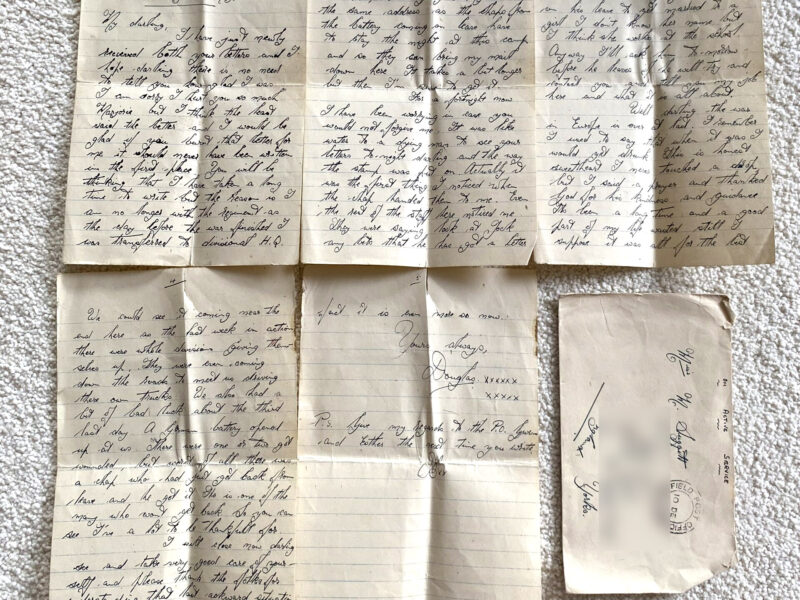 My darling,
I have just newly
received both your letters and I
hope darling there is no need
to tell you how glad I was
I am sorry I hurt you so much
Marjorie but I think the least
said the better and I would be
glad if you burnt that letter for
me it should never have been written
in the first place. You will be
thinking that I have take a long
time to write but the reason is I
am no longer with the regiment as
the day before the war finished I
was transferred to divisional H.Q.
the same address as the chaps from
the battery coming on leave have
to stay the night at this camp
and so they can bring my mail
down here. It takes a bit longer
but then I
For a fortnight now
I have been worrying in case you
would not forgive me. It was like
water to a dying man to see your
letters to-night darling and the way
the stamp was had on. Actually it
was the first thing I noticed when
the chap handed them to me. Even
the rest of the staff here noticed me
look at Jock
They were saying
any bets that he has got a letter
on his leave to get married to a
girl I don't know her name but
I think she works at the school.
Anyway I'll ask him to-morrow
before he leaves if he will try and
contact you and my job
here and what it is all about
Well darling the war
in Europe is over at last. I remember
I used to say that when it was I
would get drunk. This is honest
sweetheart I never touched a drop
but I said a prayer and thanked
God for his kindness and guidance
Its been a long time and a good
part of my life wasted still I
suppose it was all for the best
4
We could see it coming near the
end here as the last week in action
there were whole divisions giving them-
selves up. They were even coming
down the roads to meet us driving
there own trucks. We also had a
bit of bad luck about the third
last day. A German battery opened
up at us. There were one or two got
wounded but worst of all there was
a chap who had just got back from
leave and he got it. He is one of the
many who wont get back so you can
see I've a lot to be thankfull for.
I will close now darling
see and take very good care of your-
self and please thank the folks for
that last awkward situation
5
it is even more so now.
Yours always,
Douglas xxxxx
xxxxx
P.S. Give my regards to the
and Esther the next time you write
ON ACTIVE SERVICE
Miss M. Suggett
Yorks.
FIELD POST OFFICE
10 DE